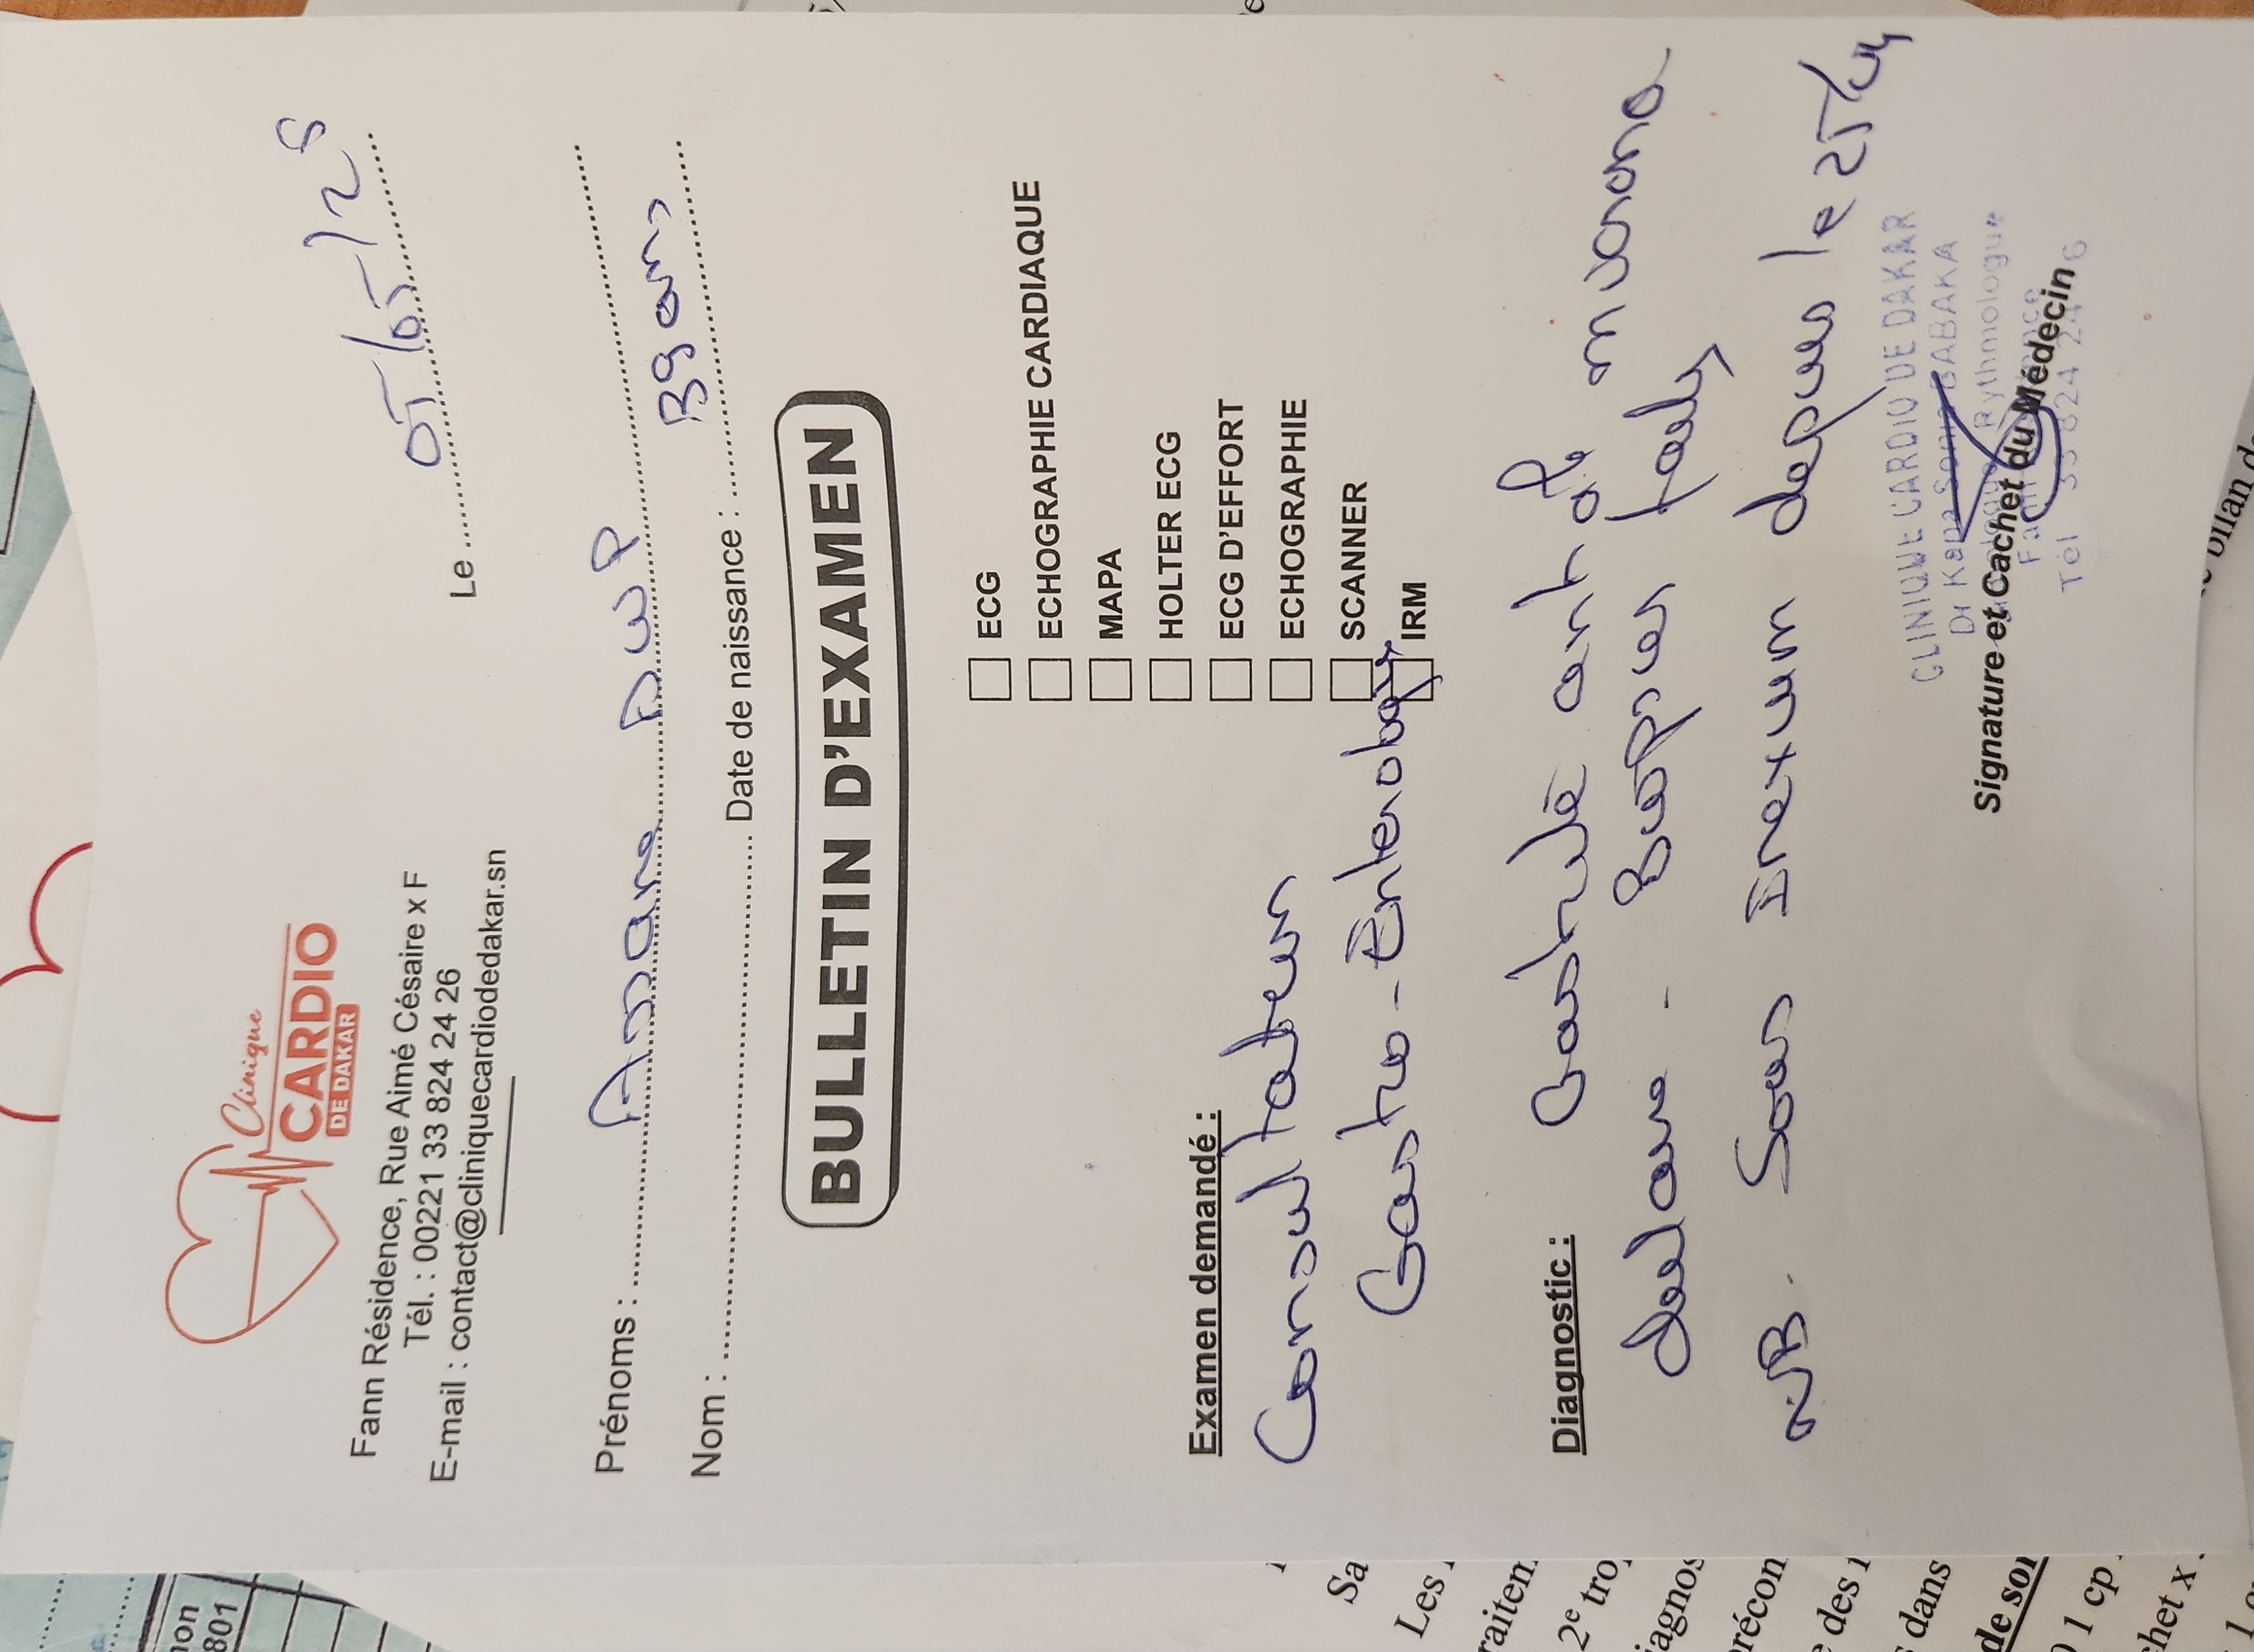 Clinique
CARDIO
DE DAKAR
Fann Résidence, Rue Aimé Césaire x F
Tél. : 00221 33 824 24 26
E-mail : contact@cliniquecardiodedakar.sn
Le 05/05/25
Prénoms :
Nom : Date de naissance : 89 ans
BULLETIN D'EXAMEN
ECG
ECHOGRAPHIE CARDIAQUE
MAPA
HOLTER ECG
ECG D'EFFORT
ECHOGRAPHIE
SCANNER
IRM
Examen demandé :
Consultation
Gastro-Entérologie
Diagnostic : Gastrite
Biopsies
NB. Sous Inexium depuis le 25/04
CLINIQUE CARDIO DE DAKAR
Dr BABAKA
Rythmologue
Signature et Cachet du Médecin
Tél 33 824 24 26
801
Sa
Les
2e
dans
1 cp